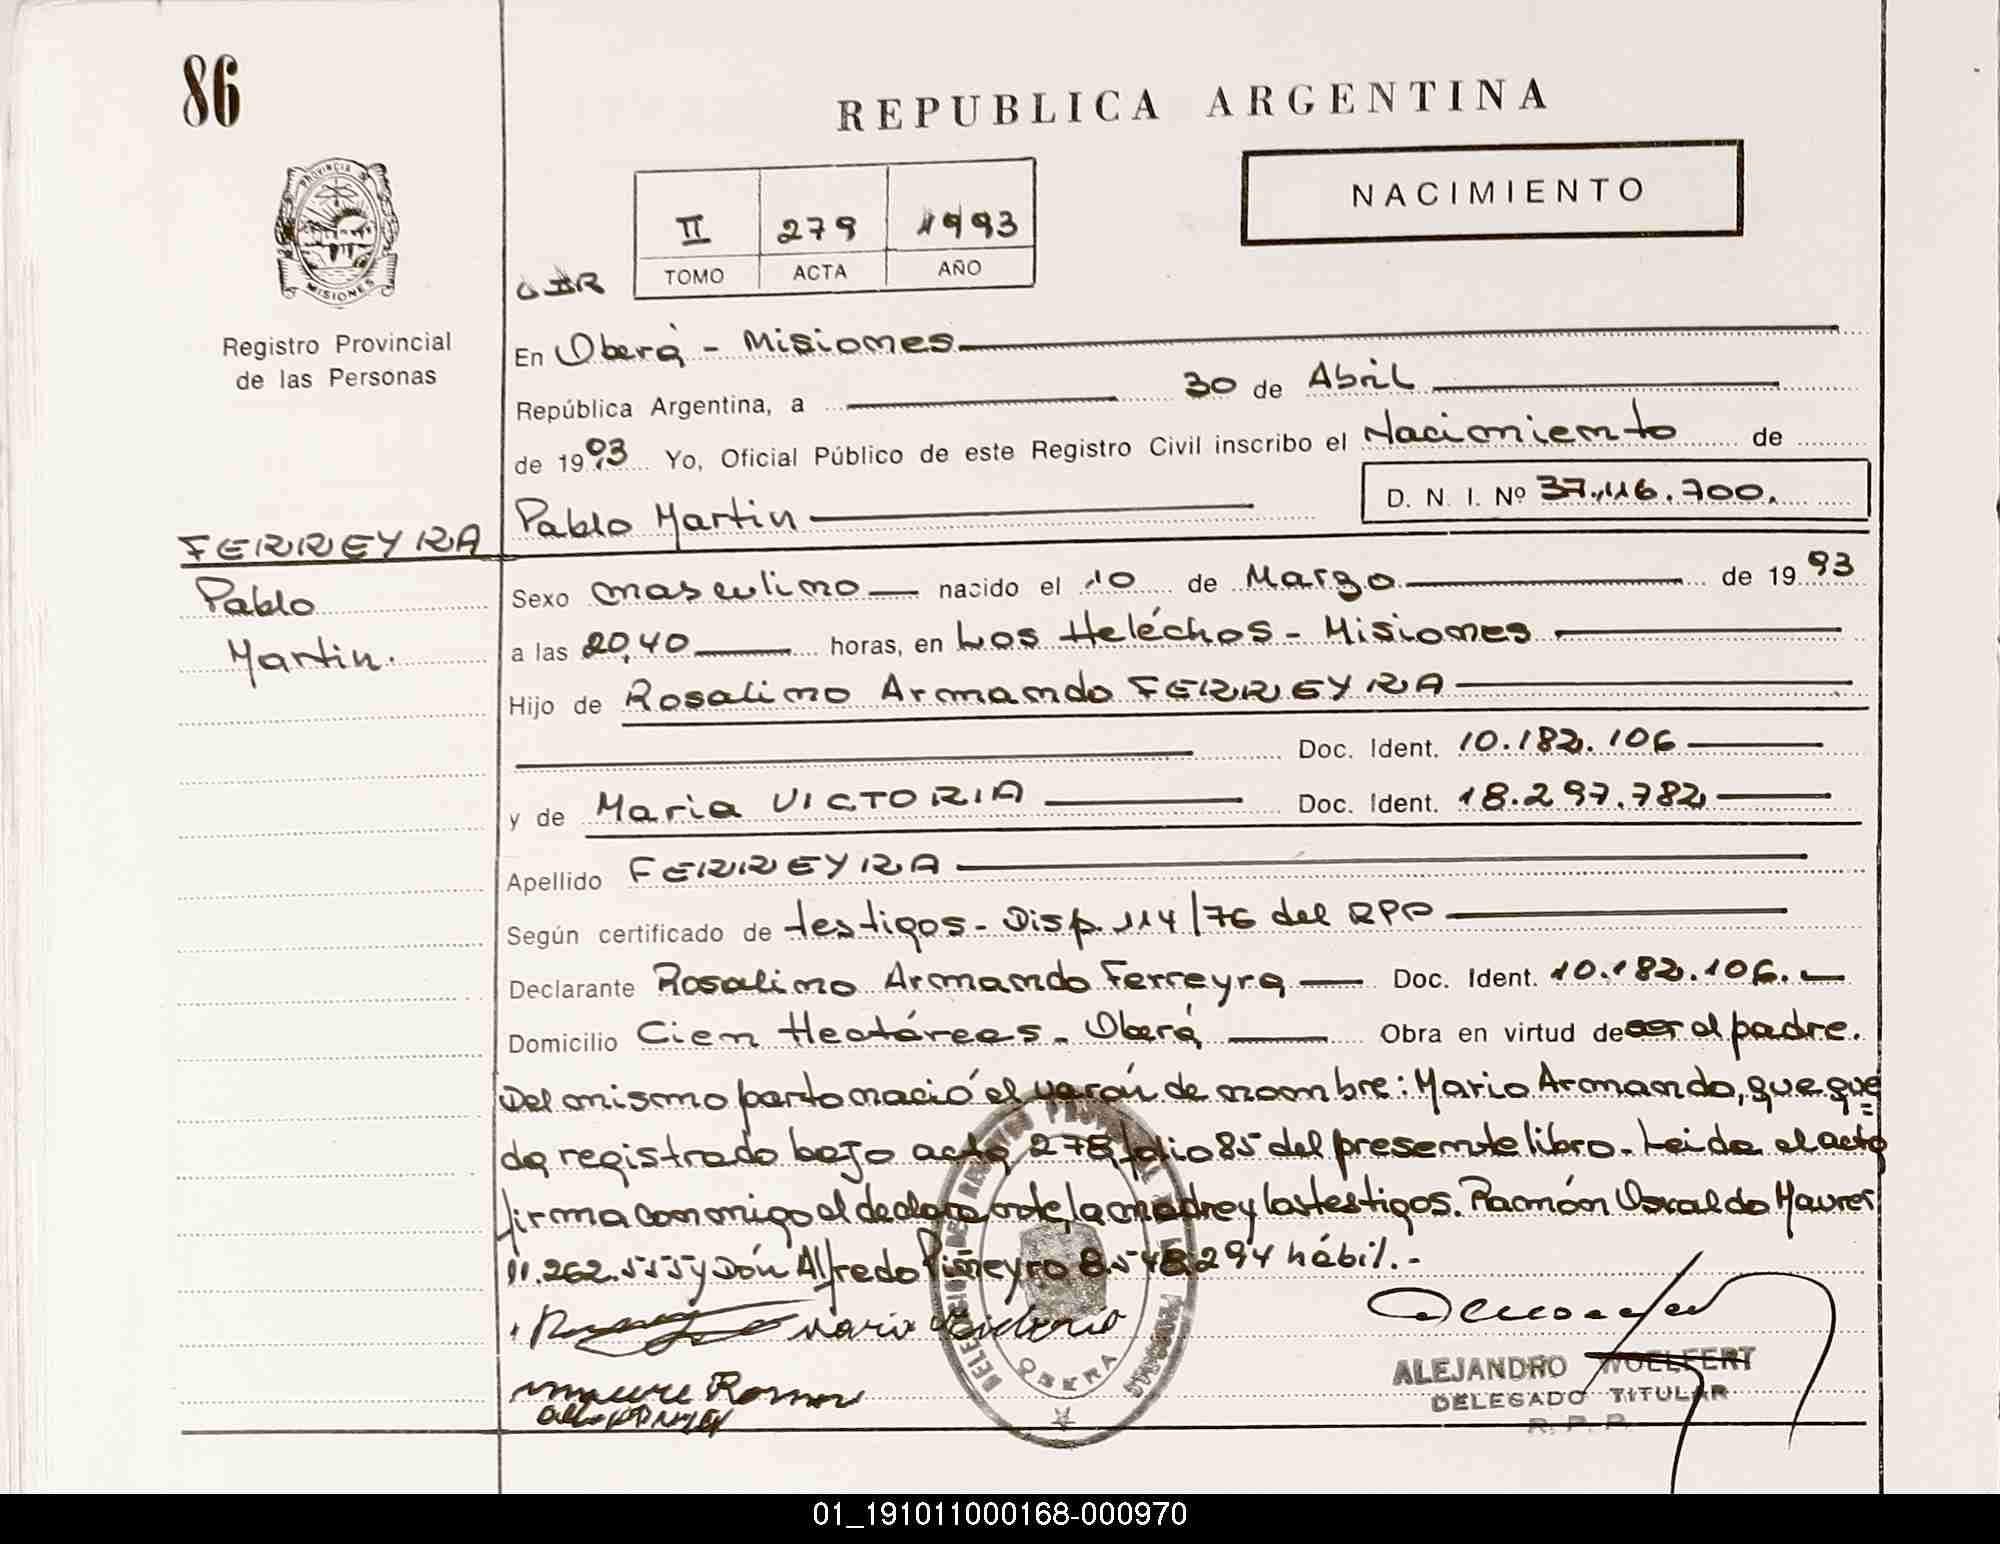 86
REPUBLICA ARGENTINA
PROVINCIA DE
MISIONES
NACIMIENTO
II 279 1993
TOMO ACTA AÑO
Registro Provincial
de las Personas
En Oberá - Misiones
República Argentina, a 30 de Abril
de 1993 Yo, Oficial Público de este Registro Civil inscribo el Nacimiento de
Pablo Martin D. N. I. Nº 37.116.700.
FERREYRA
Pablo
Martin.
Sexo masculino nacido el 10 de Marzo de 1993
a las 20,40 horas, en Los Heléchos - Misiones
Hijo de Rosalino Armando FERREYRA
Doc. Ident. 10.182.106
y de Maria VICTORIA Doc. Ident. 18.297.782
Apellido FERREYRA
Según certificado de testigos - Disp. 114/76 del RPP
Declarante Rosalino Armando Ferreyra Doc. Ident. 10.182.106.
Domicilio Cien Hectáreas - Oberá Obra en virtud de ser el padre.
Del mismo parto nació el varón de nombre: Mario Armando, que que
da registrado bajo acta 278, folio 85 del presente libro - Leida el acta
firma conmigo el declarante, la madre y los testigos. Ramón Osvaldo Maurer
11.262.555 y Dón Alfredo Piñeyro 8.548.294 hábil.-
Maria Victoria
OBERA
ALEJANDRO WOELFERT
DELEGADO TITULAR
R. P. P.
01_191011000168-000970